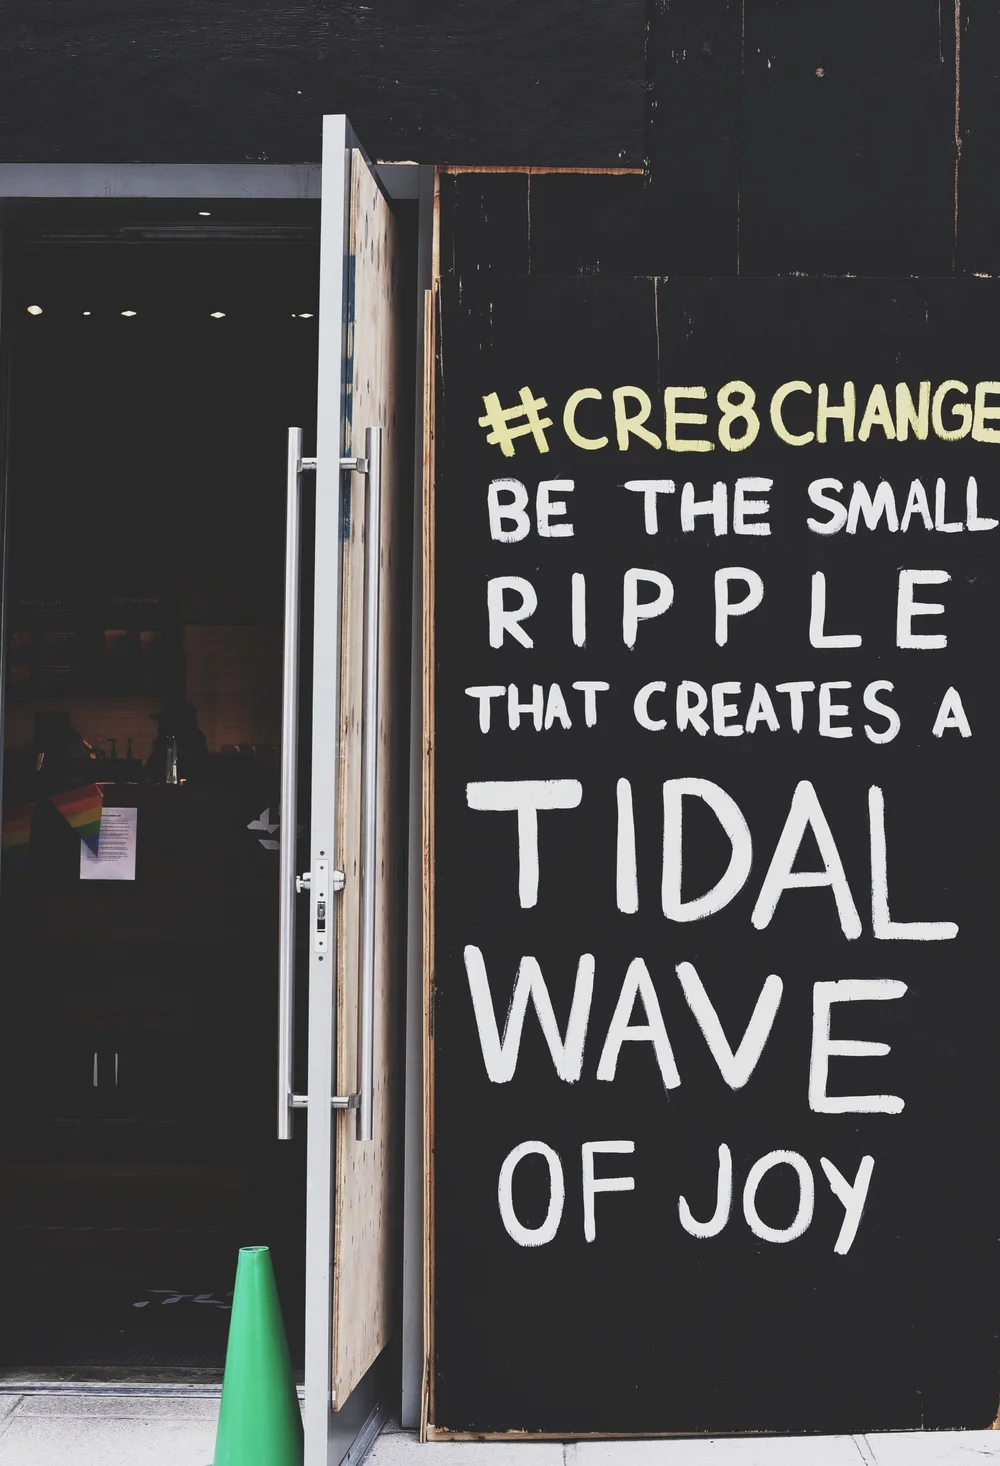 #CRE8CHANGE
BE THE SMALL
RIPPLE
THAT CREATES A
TIDAL
WAVE
OF JOY